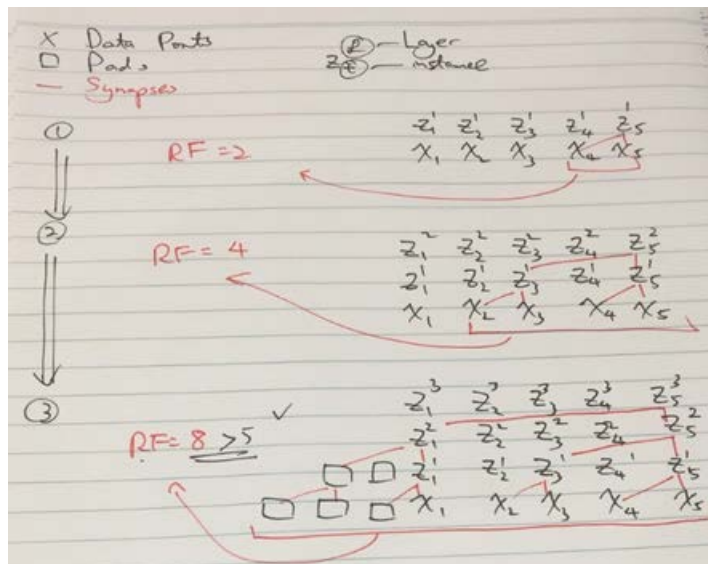 x Data Points
□ Pads
— Synapses
ⓛ — Layer
z ⓣ — instance
①
RF = 2
z₁¹ z₂¹ z₃¹ z₄¹ z₅¹
x₁ x₂ x₃ x₄ x₅
②
RF = 4
z₁² z₂² z₃² z₄² z₅²
z₁¹ z₂¹ z₃¹ z₄¹ z₅¹
x₁ x₂ x₃ x₄ x₅
③
RF = 8 > 5 ✓
z₁³ z₂³ z₃³ z₄³ z₅³
z₁² z₂² z₃² z₄² z₅²
□ □ z₁¹ z₂¹ z₃¹ z₄¹ z₅¹
□ □ □ x₁ x₂ x₃ x₄ x₅